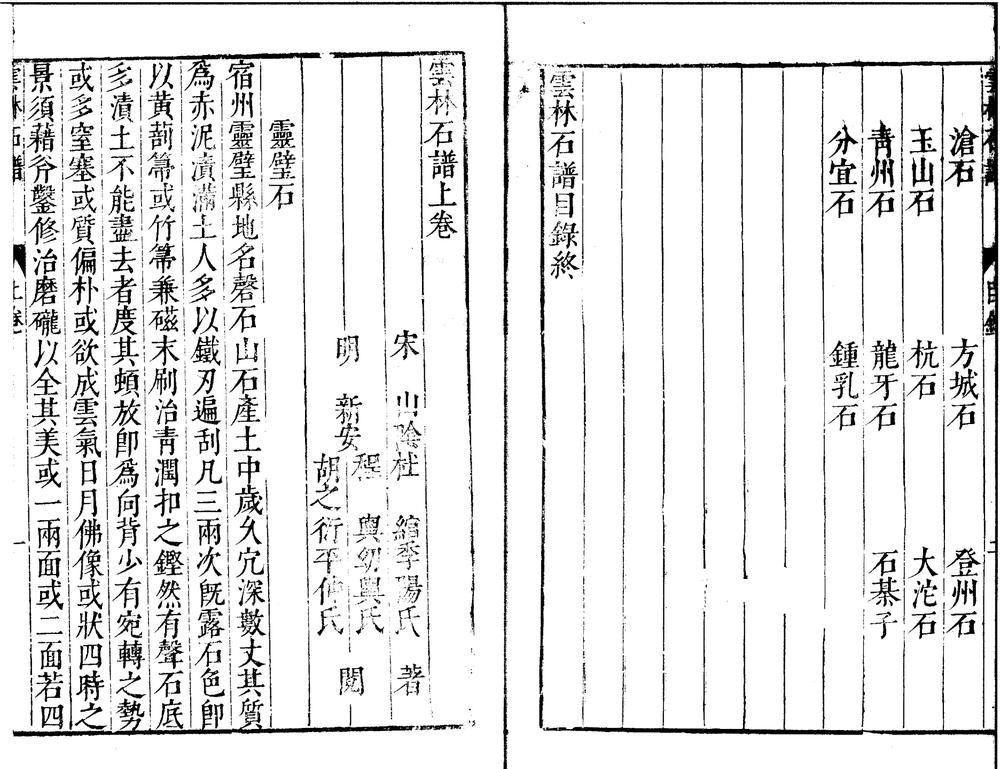 滄石　方城石　登州石
玉山石　杭石　大沱石
青州石　龍牙石　石棊子
分宜石　鍾乳石
雲林石譜目錄終
雲林石譜上卷
宋　山陰杜　綰季陽氏　著
明　新安　程　輿幼輿氏
胡之衍平仲氏　閱
靈璧石
宿州靈璧縣地名磬石山石產土中歲久穴深數丈其質
爲赤泥漬滿土人多以鐵刃遍刮凡三兩次旣露石色卽
以黃蓓箒或竹箒兼磁末刷治青潤扣之鏗然有聲石底
多漬土不能盡去者度其頓放卽爲向背少有宛轉之勢
或多窒塞或質偏朴或欲成雲氣日月佛像或狀四時之
景須藉斧鑿修治磨礲以全其美或一兩面或二面若四
雲林石譜　上卷　一